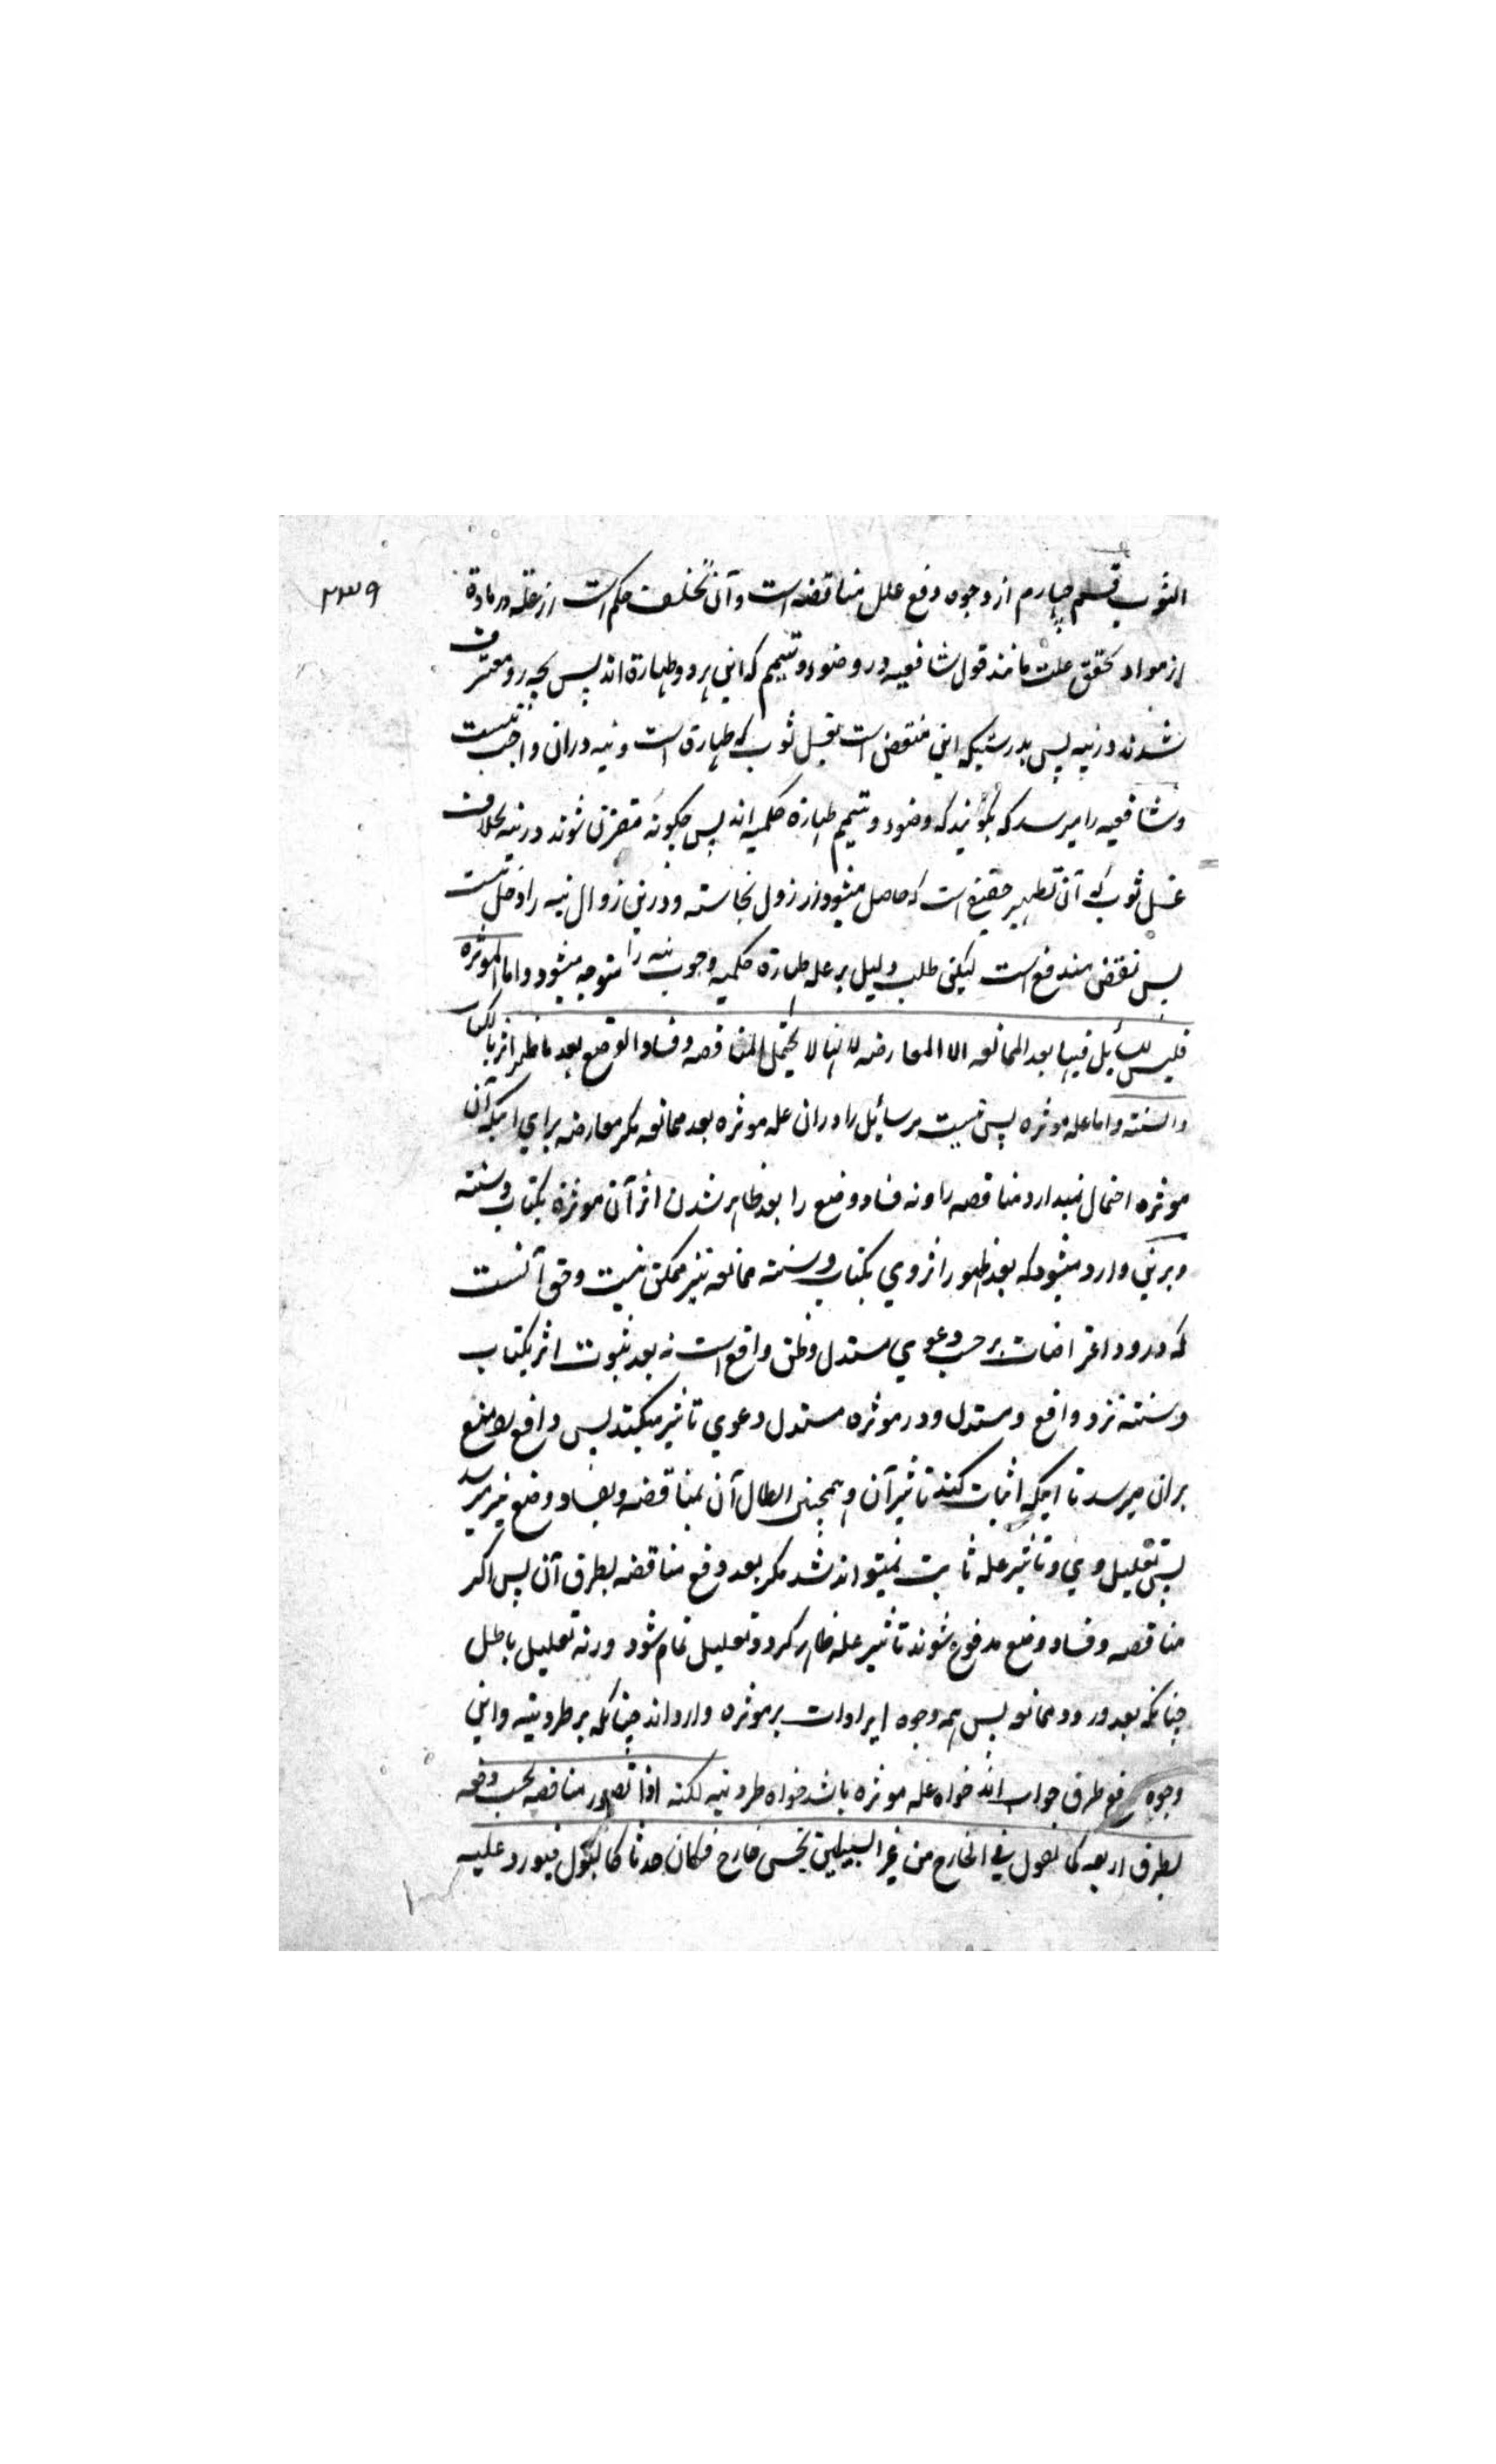 ۲۳۹
الثوب قسم چهارم از وجوه دفع علل مناقضه است و آن تخلف حکم است از عله در مادة
از مواد تحقق علت مانند قول شافعیه در وضوء و تیمم که این هر دو طهارة اند پس بچه رو مفترق
شدند در نیه پس بدرستیکه این منتقض است بغسل ثوب که طهارة است و نیه دران واجب نیست
و شافعیه را میرسد که بگویند که وضوء و تیمم طهارة حکمیه اند پس چکونه مفترق شوند در نیه بخلاف
غسل ثوب که آن تطهیر حقیقی است که حاصل میشود از زوال نجاسته و درین زوال نیه را دخل نیست
پس نقض مندفع است لیکن طلب دلیل بر عله طهارة حکمیه وجوب نیه را متوجه میشود و اما المؤثرة
فلیس للسائل فیها بعد الممانعه الا المعارضه لانها لا یحتمل المناقضه و فساد الوضع بعد ما ظهر اثرها بالکتاب
والسنته و اما عله موثره پس نیست مر سائل را دران عله موثره بعد ممانعه مکر معارضه برای اینکه آن
موثره احتمال نمیدارد مناقضه را و نه فساد وضع را بعد ظاهر شدن اثر آن موثرة بکتاب و سنته
و برین وارد میشود که بعد ظهور اثر وي بکتاب و سنته ممانعه نیز ممکن نیست و حق آنست
که ورود اعتراضات بر حسب دعوي مستدل و ظن واقع است نه بعد ثبوت اثر بکتاب
و سنته نزد دافع و مستدل و در موثره مستدل دعوي تاثیر میکند پس دافع را منع
بران میرسد تا اینکه اثبات کند تاثیر آن و همچنین ابطال آن بمناقضه و بفساد وضع نیز میرسد
پس تعلیل وي و تاثیر عله ثابت نمیتواند شد مکر بعد دفع مناقضه بطرق آن پس اکر
مناقضه و فساد وضع مدفوع شوند تاثیر عله ظاهر کردد و تعلیل تمام شود و رنه تعلیل باطل
چنانکه بعد ورود ممانعه پس همه وجوه ایرادات بر موثره وارد اند چنانکه بر طردیه و این
وجوه دفع طرق جواب اند خواه عله موثره باشد خواه طردیه لکنه اذا تصور مناقضه یجب دفعه
بطرق اربعه کما نقول في الخارج من غیر السبیلین نجس خارج فکان حدثا کالبول فیورد علیه